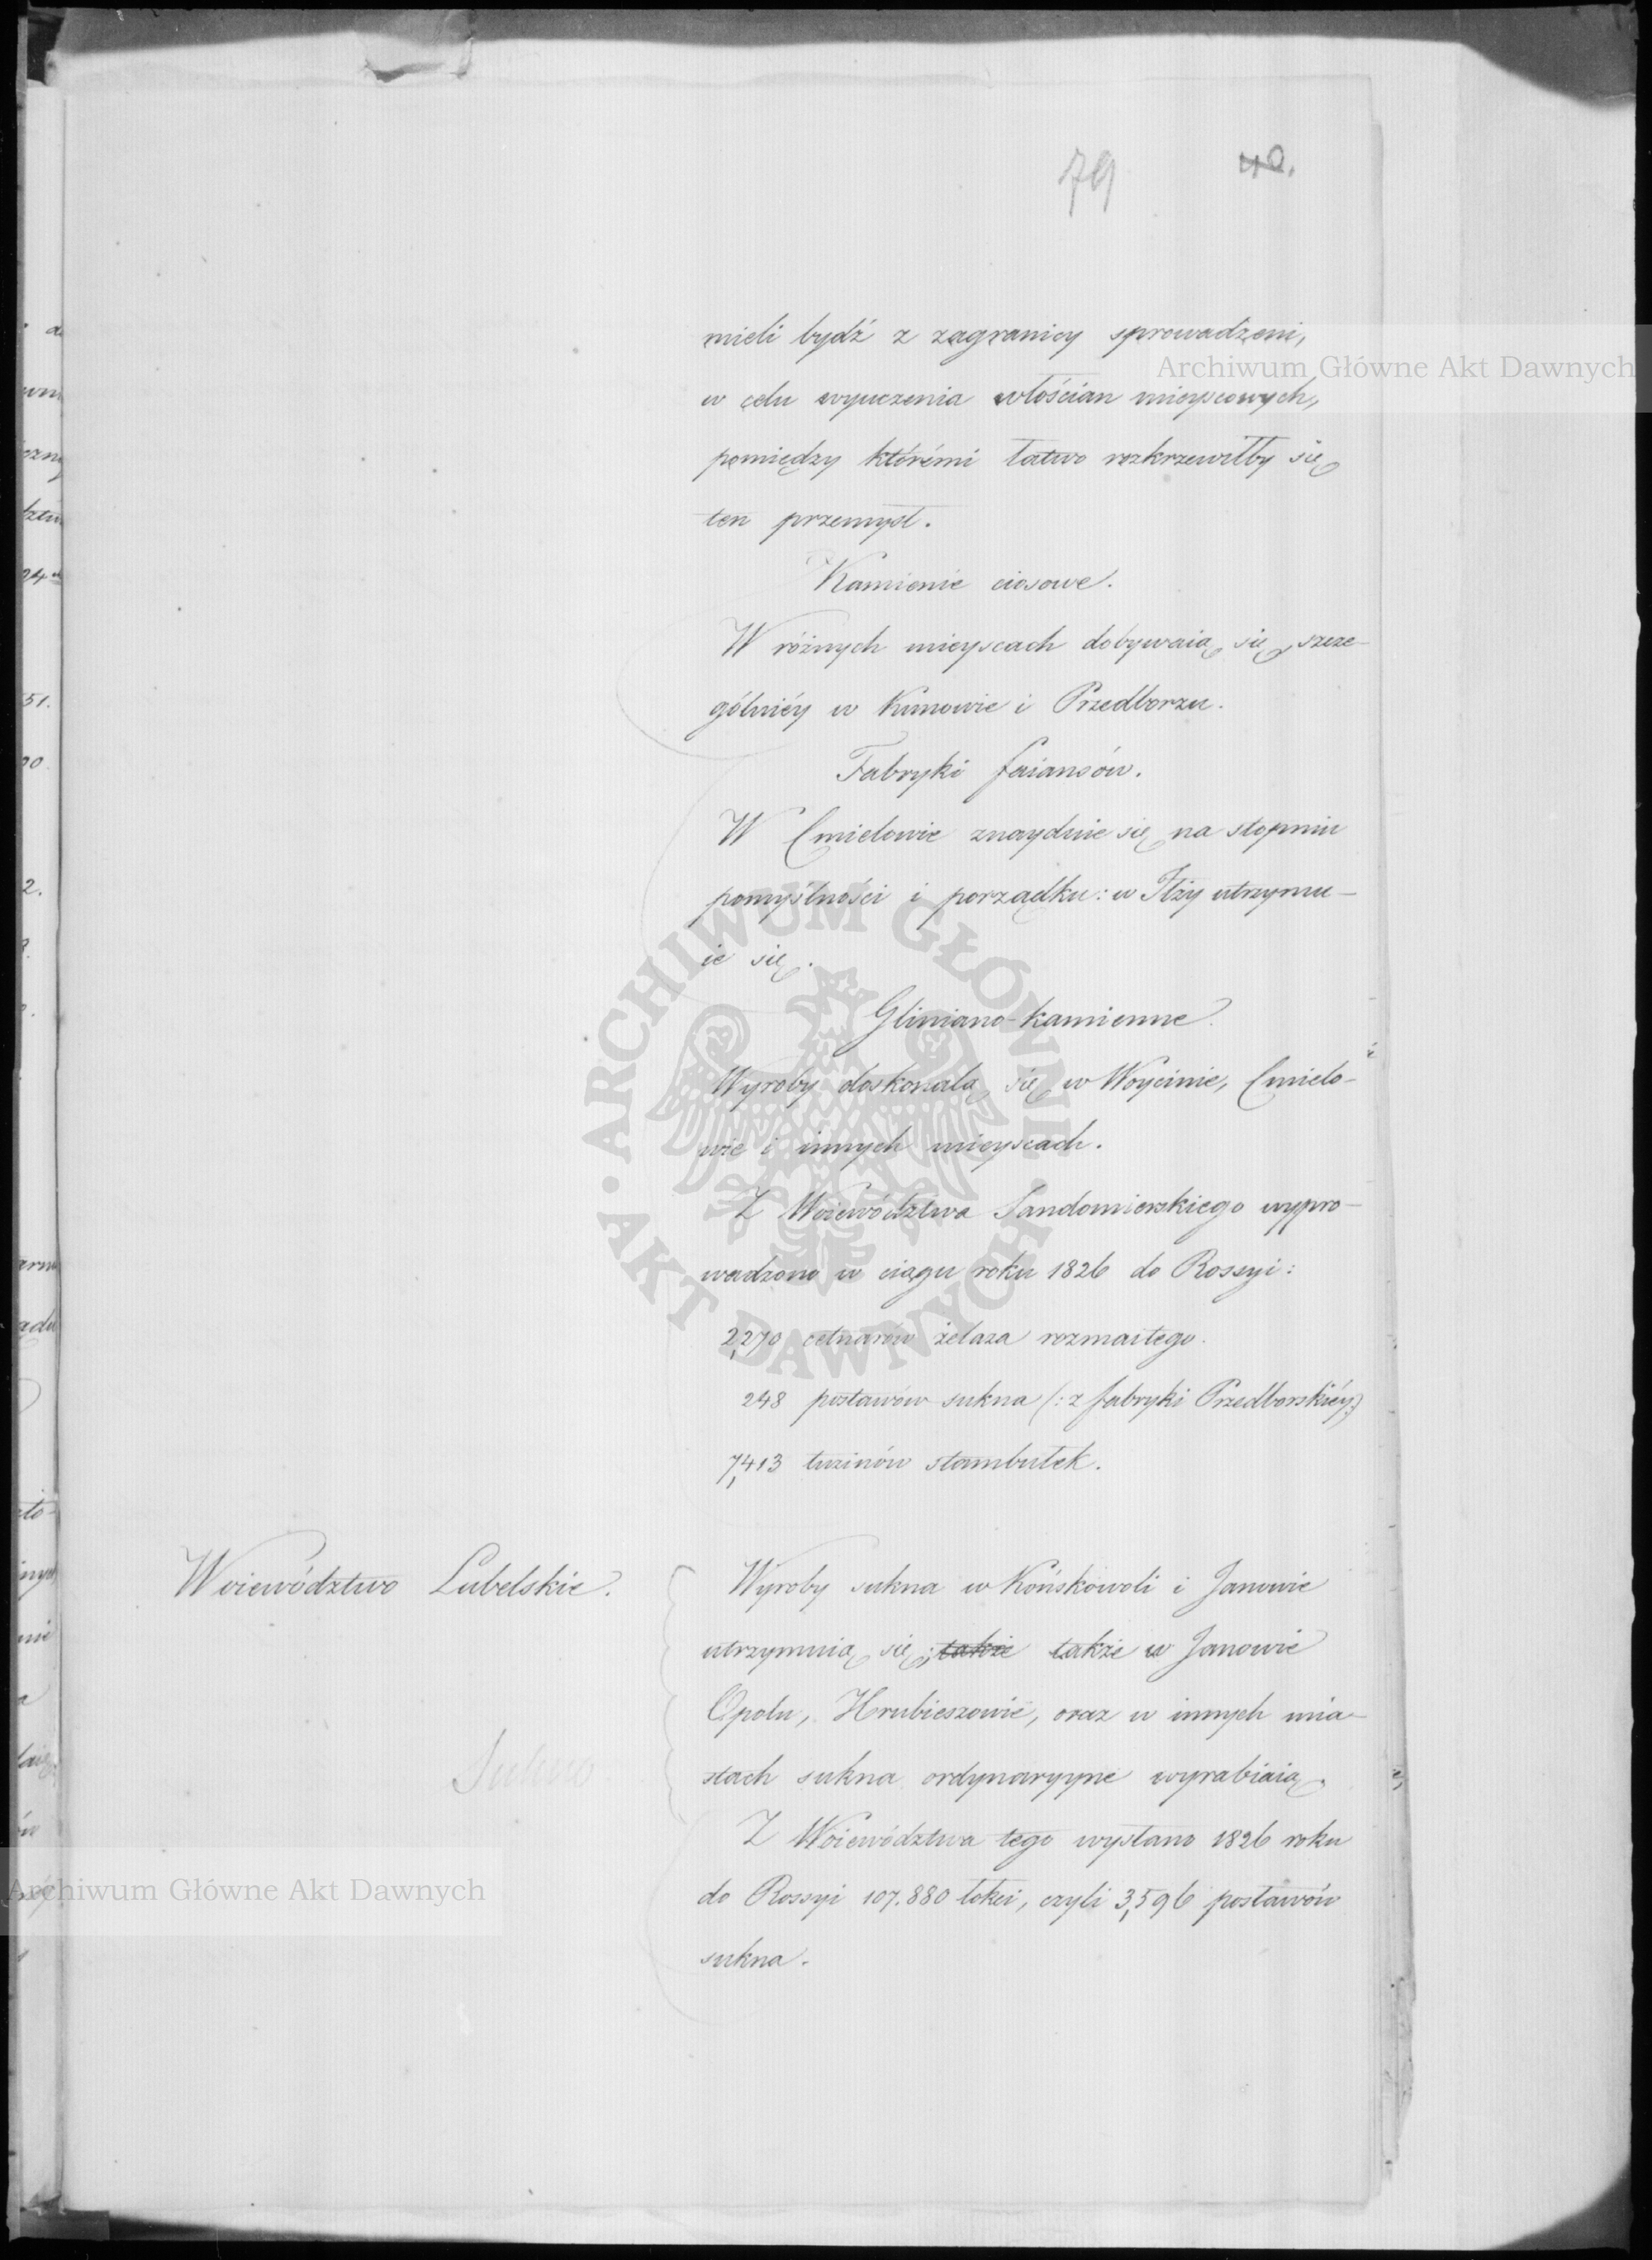 79 40.
mieli bydź z zagranicy sprowadzeni,
w celu wyuczenia włościan mieyscowych,
pomiędzy którémi łatwo rozkrzewiłby się
ten przemysł.
Kamienie ciosowe.
W różnych mieyscach dobywaią się szcze-
gólniéy w Kunowie i Przedborzu.
Fabryki faiansów.
W Cmielowie znayduie się na stopniu
pomyślności i porządku: w Iłży utrzymu-
ie się.
Gliniano-kamienne.
Wyroby doskonalą się w Woycinie, Cmielo-
wie i innych mieyscach.
Z Woiewództwa Sandomierskiego wypro-
wadzono w ciągu roku 1826 do Rossyi:
2,270 cetnarów żelaza rozmaitego.
248 postawów sukna (: z fabryki Przedborskiéy:)
7,413 tuzinów stambułek.
Woiewództwo Lubelskie.
Wyroby sukna w Końskowoli i Janowie
utrzymuią się; także także w Janowie
Opolu, Hrubieszowie, oraz w innych mia-
stach sukna ordynaryyne wyrabiaią.
Sukno
Z Woiewództwa tego wysłano 1826 roku
do Rossyi 107.880 łokci, czyli 3,596 postawów
sukna.
Archiwum Główne Akt Dawnych
ARCHIWUM GŁÓWNE AKT DAWNYCH
Archiwum Główne Akt Dawnych